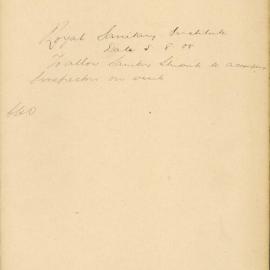 Royal Sanitary Institute
Date 5 8 08
To allow Sanitary Students to accompany
Inspectors on visit
660